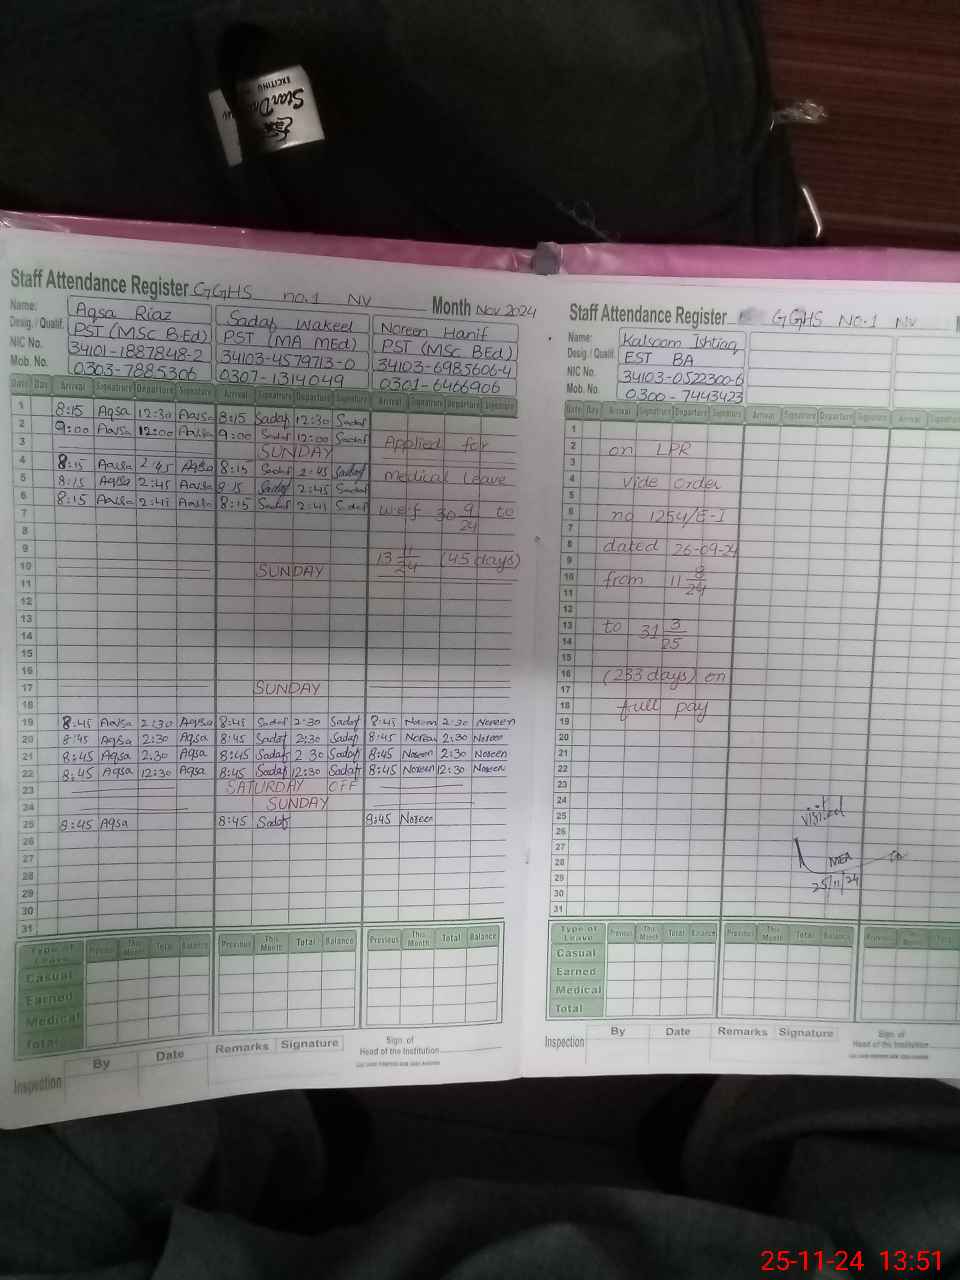 Star Dra
EXCITING
Staff Attendance Register GGHS no.1 NV Month Nov 2024
Name: Aqsa Riaz Sadaf Wakeel Noreen Hanif
Desig. / Qualif. PST (MSc B.Ed) PST (MA MEd) PST (MSC BEd)
NIC No. 34101-1887848-2 34103-4579713-0 34103-6985606-4
Mob. No. 0303-7885306 0307-1314049 0301-6466906
Date Day Arrival Signature Departure Signature Arrival Signature Departure Signature Arrival Signature Departure Signature
1 8:15 Aqsa 12:30 Aqsa 8:15 Sadaf 12:30 Sadaf
2 9:00 Aqsa 12:00 Aqsa 9:00 Sadaf 12:00 Sadaf Applied for
3 SUNDAY
4 8:15 Aqsa 2:45 Aqsa 8:15 Sadaf 2:45 Sadaf medical leave
5 8:15 Aqsa 2:45 Aqsa 8:15 Sadaf 2:45 Sadaf
6 8:15 Aqsa 2:45 Aqsa 8:15 Sadaf 2:45 Sadaf w.e.f 30 9/24 to
7
8
9 13 11/24 (45 days)
10 SUNDAY
11
12
13
14
15
16
17 SUNDAY
18
19 8:45 Aqsa 2:30 Aqsa 8:45 Sadaf 2:30 Sadaf 8:45 Noreen 2:30 Noreen
20 8:45 Aqsa 2:30 Aqsa 8:45 Sadaf 2:30 Sadaf 8:45 Noreen 2:30 Noreen
21 8:45 Aqsa 2:30 Aqsa 8:45 Sadaf 2:30 Sadaf 8:45 Noreen 2:30 Noreen
22 8:45 Aqsa 12:30 Aqsa 8:45 Sadaf 12:30 Sadaf 8:45 Noreen 12:30 Noreen
23 SATURDAY OFF
24 SUNDAY
25 8:45 Aqsa 8:45 Sadaf 8:45 Noreen
26
27
28
29
30
31
Type of Leave Previous This Month Total Balance Previous This Month Total Balance Previous This Month Total Balance
Casual
Earned
Medical
Total
Inspection By Date Remarks Signature Sign. of Head of the Institution
Staff Attendance Register GGHS NO.1 NV
Name: Kalsoom Ishtiaq
Desig / Qualif. EST BA
NIC No. 34103-0522300-6
Mob. No. 0300-7443423
Date Day Arrival Signature Departure Signature Arrival Signature Departure Signature Arrival Signature
1
2 on LPR
3
4 Vide order
5
6 no 1254/E-I
7
8 dated 26-09-24
9
10 from 11 8/24
11
12
13 to 31 3/25
14
15
16 (233 days) on
17
18 full pay
19
20
21
22
23
24
25 visited
26
27
28 MEA
29 25/11/24
30
31
Type of Leave Previous This Month Total Balance Previous This Month Total Balance Previous This Month Total
Casual
Earned
Medical
Total
Inspection By Date Remarks Signature Sign. of Head of the Institution
25-11-24 13:51